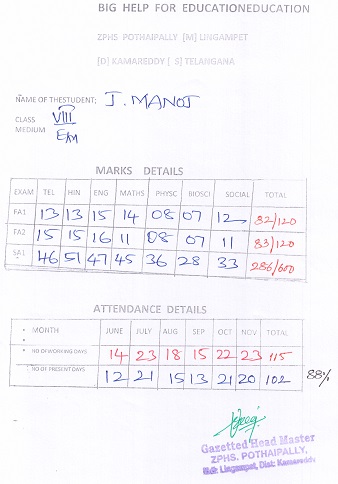 BIG HELP FOR EDUCATIONEDUCATION
ZPHS POTHAIPALLY [M] LINGAMPET
[D] KAMAREDDY [ S] TELANGANA
NAME OF THESTUDENT; J. MANOJ
CLASS VIII
MEDIUM E/M
MARKS DETAILS
EXAM TEL HIN ENG MATHS PHYSC BIOSCI SOCIAL TOTAL
FA1 13 13 15 14 08 07 12 82/120
FA2 15 15 16 11 08 07 11 83/120
SA1 46 51 47 45 36 28 33 286/600
ATTENDANCE DETAILS
• MONTH JUNE JULY AUG SEP OCT NOV TOTAL
•
• NO OF WORKING DAYS 14 23 18 15 22 23 115
• NO OF PRESENT DAYS 12 21 15 13 21 20 102 88%
Gazetted Head Master
ZPHS. POTHAIPALLY,
Mdl: Lingampet, Dist: Kamareddy